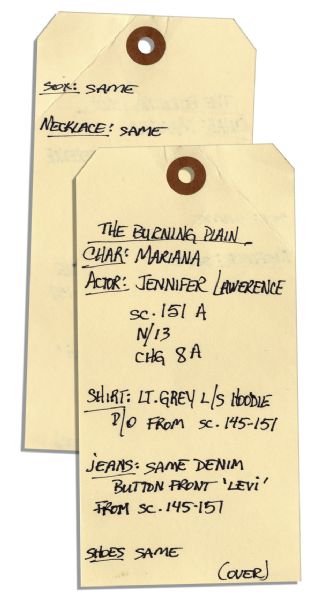 SOX: SAME
NECKLACE: SAME
THE BURNING PLAIN
CHAR: MARIANA
ACTOR: JENNIFER LAWERENCE
SC. 151 A
N/13
CHG 8A
SHIRT: LT. GREY L/S HOODIE
D/O FROM SC. 145-151
JEANS: SAME DENIM
BUTTON FRONT 'LEVI'
FROM SC. 145-151
SHOES SAME
(OVER)